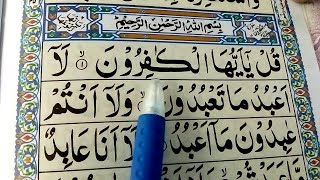 بِسْمِ اللّٰهِ الرَّحْمٰنِ الرَّحِيْمِ
قُلْ يٰٓاَيُّهَا الْكٰفِرُوْنَ ۙ﴿۱﴾ لَاۤ
اَعْبُدُ مَا تَعْبُدُوْنَ وَلَاۤ اَنْتُمْ
عٰبِدُوْنَ مَاۤ اَعْبُدُ وَلَاۤ اَنَا عَابِدٌ